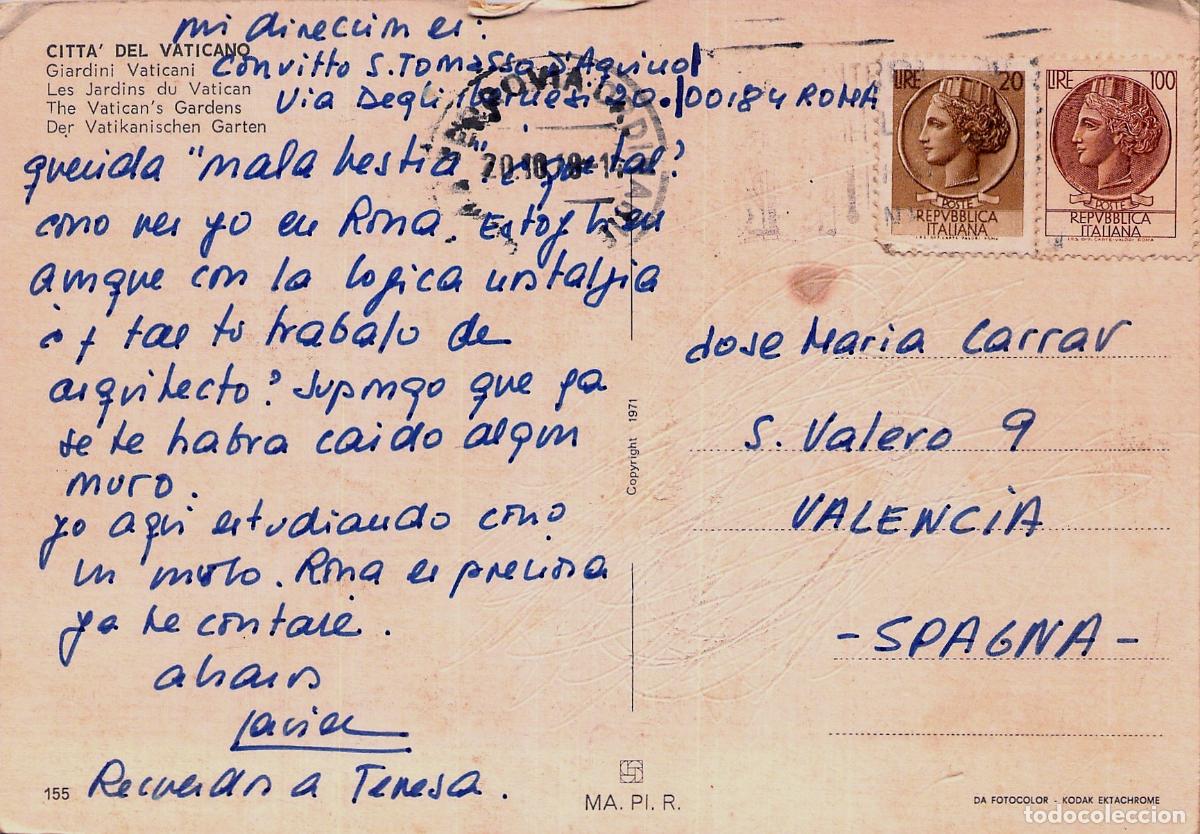 mi direccion es:
CITTA' DEL VATICANO
Giardini Vaticani
Les Jardins du Vatican
The Vatican's Gardens
Der Vatikanischen Garten
Convitto S. Tomasso D'Aquino
Via Degli 20. / 00184 ROMA
querida "mala bestia" ¿que tal?
como ves yo en Roma. Estoy bien
aunque con la logica nostalgia
¿ y tal tu trabajo de
arquitecto? Supongo que ya
se te habra caido algun
muro.
yo aqui estudiando como
un mulo. Roma es preciosa
ya te contaré.
abrazos
Javier
Recuerdos a Teresa.
155
LIRE 20
POSTE
REPVBBLICA
ITALIANA
I.P.S. OFF. CARTE-VALORI ROMA
LIRE 100
POSTE
REPVBBLICA
ITALIANA
I.P.S. OFF. CARTE-VALORI ROMA
Jose Maria Carrau
S. Valero 9
VALENCIA
- SPAGNA -
Copyright 1971
MA. PI. R.
DA FOTOCOLOR - KODAK EKTACHROME
todocoleccion